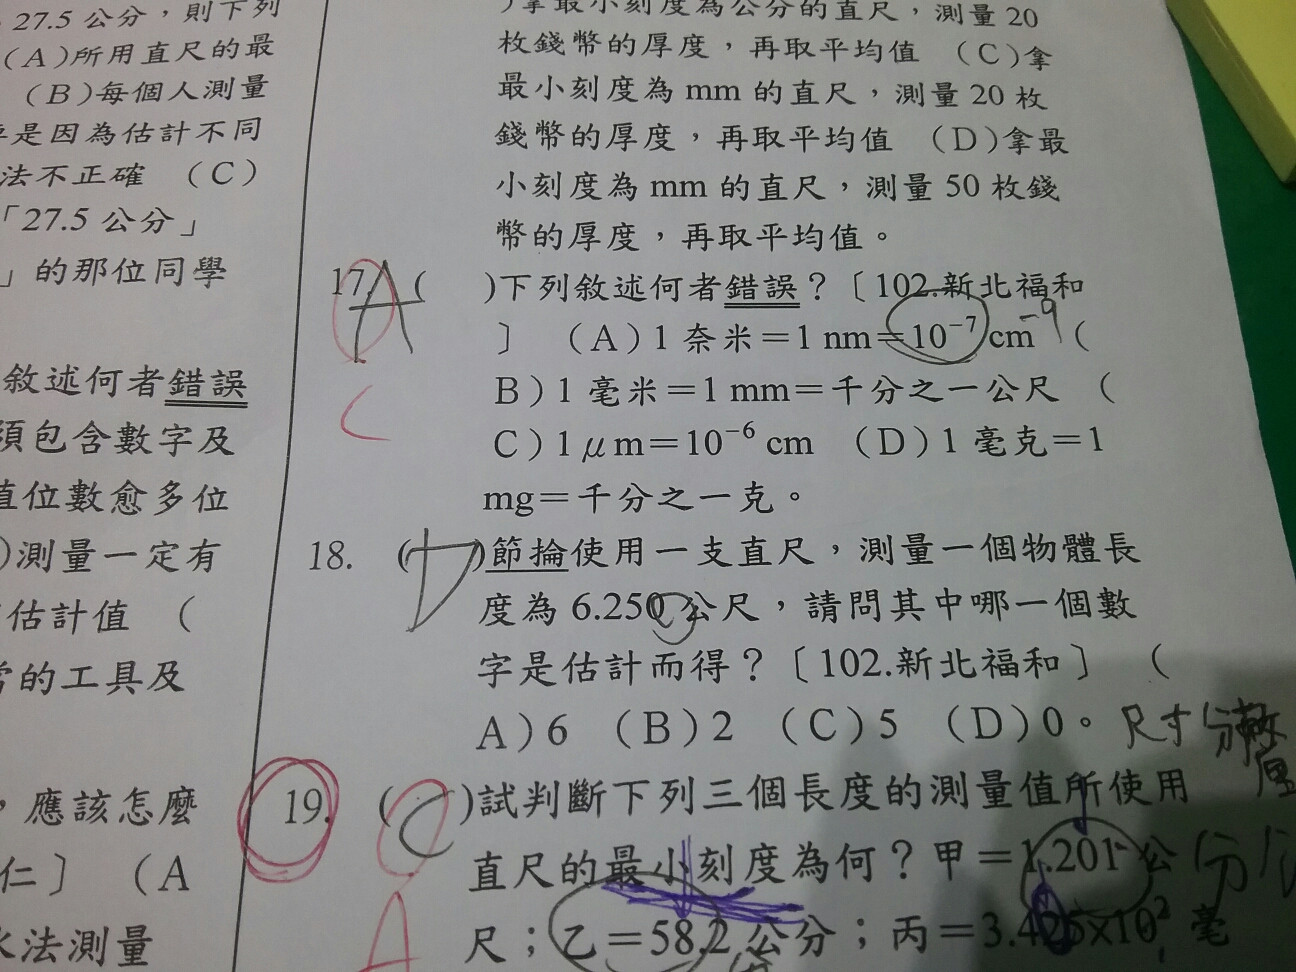 27.5 公分，則下列
(A)所用直尺的最
(B)每個人測量
是因為估計不同
法不正確 (C)
「27.5 公分」
」的那位同學
敘述何者錯誤
須包含數字及
值位數愈多位
)測量一定有
估計值 (
的工具及
，應該怎麼
仁〕 (A
水法測量
)拿最小刻度為公分的直尺，測量 20
枚錢幣的厚度，再取平均值 (C)拿
最小刻度為 mm 的直尺，測量 20 枚
錢幣的厚度，再取平均值 (D)拿最
小刻度為 mm 的直尺，測量 50 枚錢
幣的厚度，再取平均值。
17. A ( )下列敘述何者錯誤？〔102.新北福和
〕 (A)1 奈米＝1 nm＝10⁻⁷ cm (
-9
C
B)1 毫米＝1 mm＝千分之一公尺 (
C)1 μm＝10⁻⁶ cm (D)1 毫克＝1
mg＝千分之一克。
18. (D)節掄使用一支直尺，測量一個物體長
度為 6.250 公尺，請問其中哪一個數
字是估計而得？〔102.新北福和〕 (
A)6 (B)2 (C)5 (D)0。尺寸分
19. (C)試判斷下列三個長度的測量值所使用
A
直尺的最小刻度為何？甲＝1.201 公
分
尺；乙＝58.2 公分；丙＝3.425×10² 毫